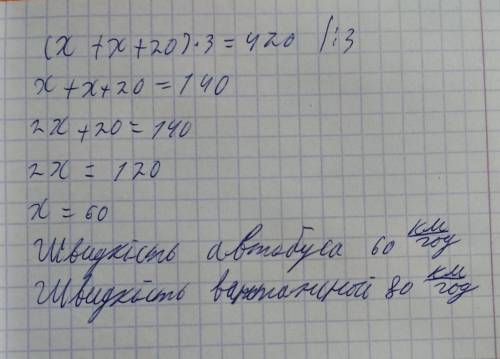 (x + x + 20) · 3 = 420 /:3
x + x + 20 = 140
2x + 20 = 140
2x = 120
x = 60
Швидкість автобуса 60 км/год
Швидкість 80 км/год